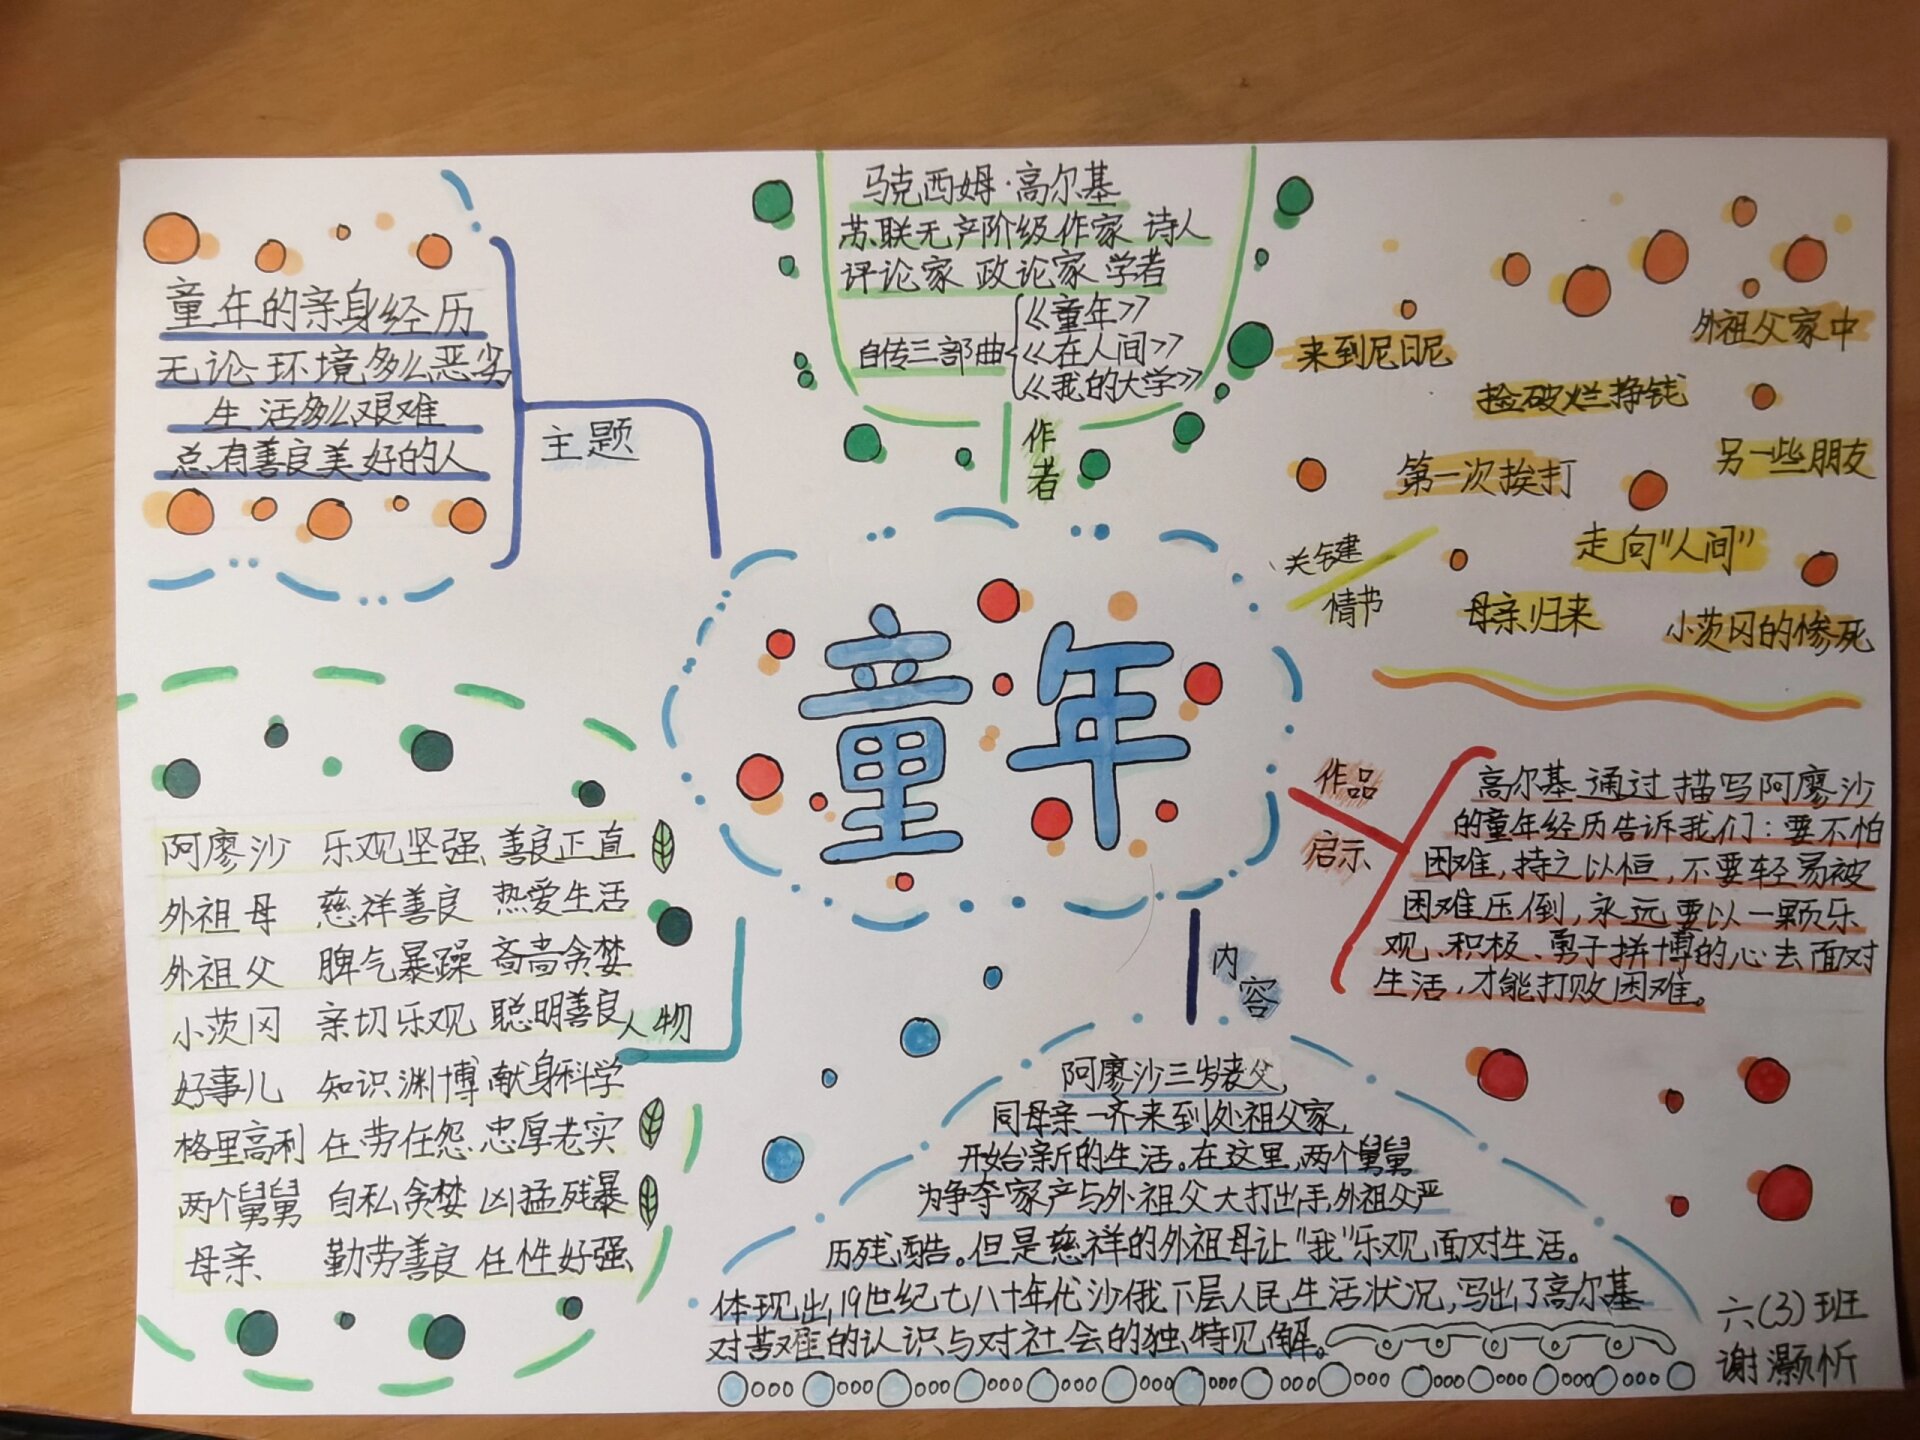 童年的亲身经历
无论环境多么恶劣
生活多么艰难
总有善良美好的人
主题
马克西姆·高尔基
苏联无产阶级作家 诗人
评论家 政论家 学者
自传三部曲
《童年》
《在人间》
《我的大学》
作者
外祖父家中
来到尼日尼
捡破烂挣钱
另一些朋友
第一次挨打
走向"人间"
关键
情节
母亲归来
小茨冈的惨死
童年
作品
启示
高尔基通过描写阿廖沙
的童年经历告诉我们：要不怕
困难，持之以恒，不要轻易被
困难压倒，永远要以一颗乐
观、积极、勇于拼搏的心去面对
生活，才能打败困难。
阿廖沙 乐观坚强 善良正直
外祖母 慈祥善良 热爱生活
外祖父 脾气暴躁 吝啬贪婪
小茨冈 亲切乐观 聪明善良
好事儿 知识渊博 献身科学
格里高利 任劳任怨 忠厚老实
两个舅舅 自私贪婪 凶猛残暴
母亲 勤劳善良 任性好强
人物
内容
阿廖沙三岁丧父，
同母亲一齐来到外祖父家，
开始新的生活。在这里，两个舅舅
为争夺家产与外祖父大打出手，外祖父严
历残酷。但是慈祥的外祖母让"我"乐观面对生活。
体现出，19世纪七八十年代沙俄下层人民生活状况，写出了高尔基
对苦难的认识与对社会的独特见解。
六(3)班
谢灏忻